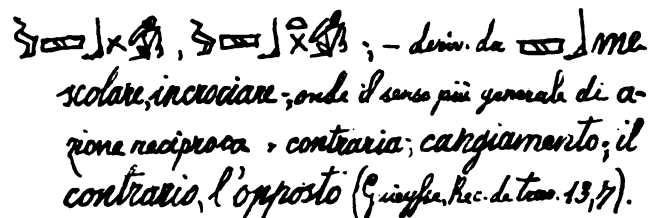 , ; – deriv. da 𓈙𓃀 me
scolare, incrociare -; onde il senso più generale di a-
zione reciproca e contraria; cangiamento; il
contrario, l'opposto (Guieysse, Rec. de trav. 13, 7).